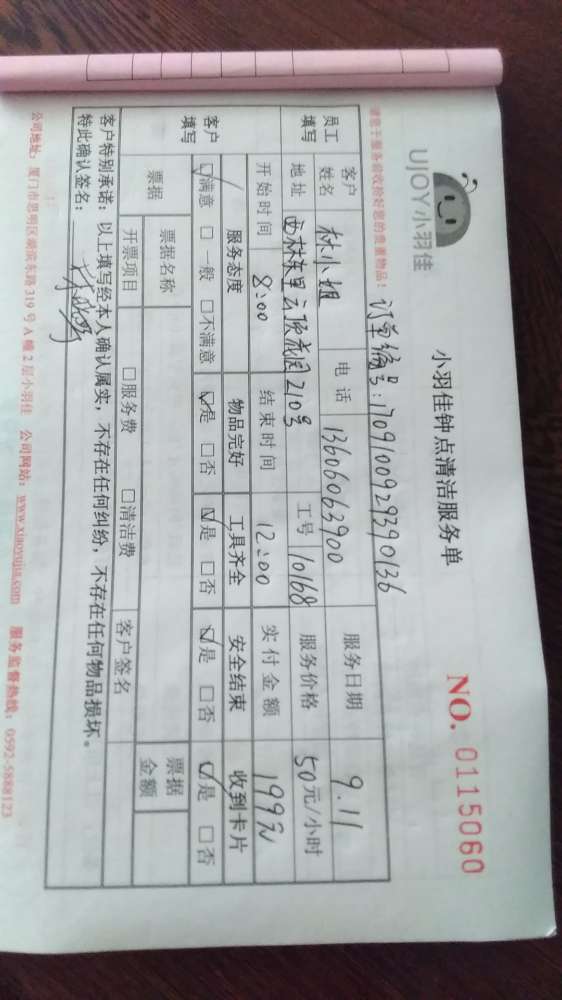 UJOY小羽佳
小羽佳钟点清洁服务单
NO. 0115060
请您于服务前收拾好您的贵重物品！
订单编号：1709100929390136
员工填写
客户姓名 林小姐 电话 13606063900 服务日期 9.11
地址 西林东里云顶花园210号 工号 10168 服务价格 50元/小时
开始时间 8:00 结束时间 12:00 实付金额 199元
客户填写
服务态度 物品完好 工具齐全 安全结束 收到卡片
☑满意 □一般 □不满意 ☑是 □否 ☑是 □否 ☑是 □否 ☑是 □否
票据 票据名称 票据金额
开票项目 □服务费 □清洁费 客户签名
客户特别承诺：以上填写经本人确认属实，不存在任何纠纷，不存在任何物品损坏。
特此确认签名：
公司地址：厦门市思明区湖滨东路319号A幢2层小羽佳 公司网站：www.xiaoyujia.com 服务监督热线：0592-5888123